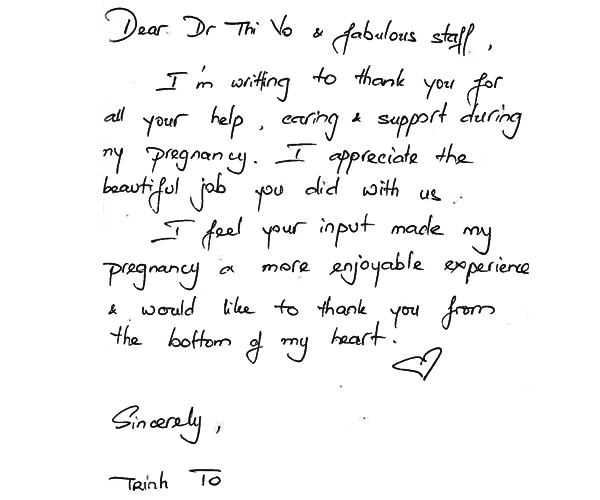 Dear Dr Thi Vo & fabulous staff,
I'm writting to thank you for
all your help, caring & support during
my pregnancy. I appreciate the
beautiful job you did with us.
I feel your input made my
pregnancy a more enjoyable experience
& would like to thank you from
the bottom of my heart.
Sincerely,
Trinh To